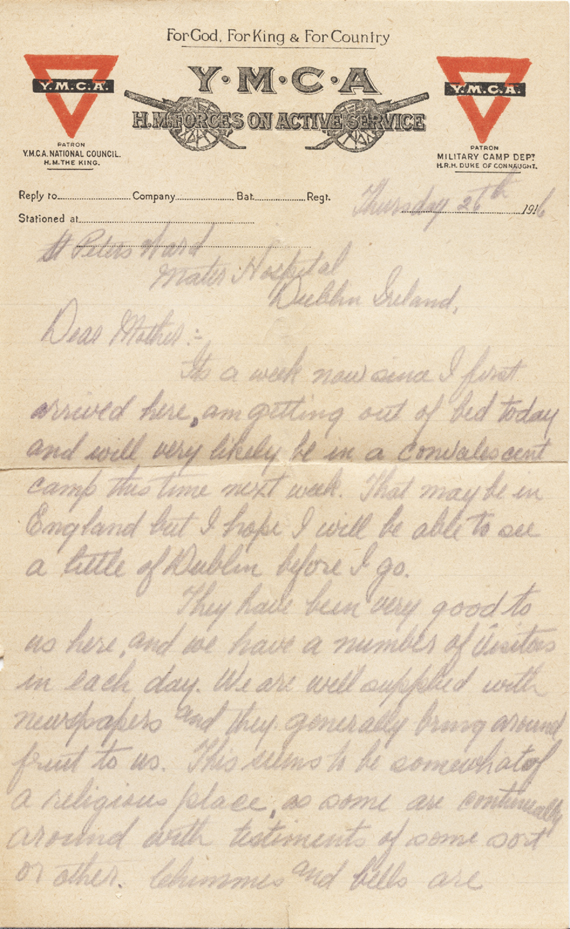 For God, For King & For Country
Y.M.C.A.
Y·M·C·A
Y.M.C.A.
H.M. FORCES ON ACTIVE SERVICE
PATRON
Y.M.C.A. NATIONAL COUNCIL.
H.M. THE KING.
PATRON
MILITARY CAMP DEPT
H.R.H. DUKE OF CONNAUGHT.
Reply to Company Bat. Regt. Thursday 26th 1916
Stationed at
St Peters Ward
Mater Hospital
Dublin Ireland,
Dear Mother:-
Its a week now since I first
arrived here, am getting out of bed today
and will very likely be in a convalescent
camp this time next week. That may be in
England but I hope I will be able to see
a little of Dublin before I go.
They have been very good to
us here, and we have a number of visitors
in each day. We are well supplied with
newspapers and they generally bring around
fruit to us. This seems to be somewhat of
a religious place, as some are continually
around with testiments of some sort
or other. Chimmes and bells are